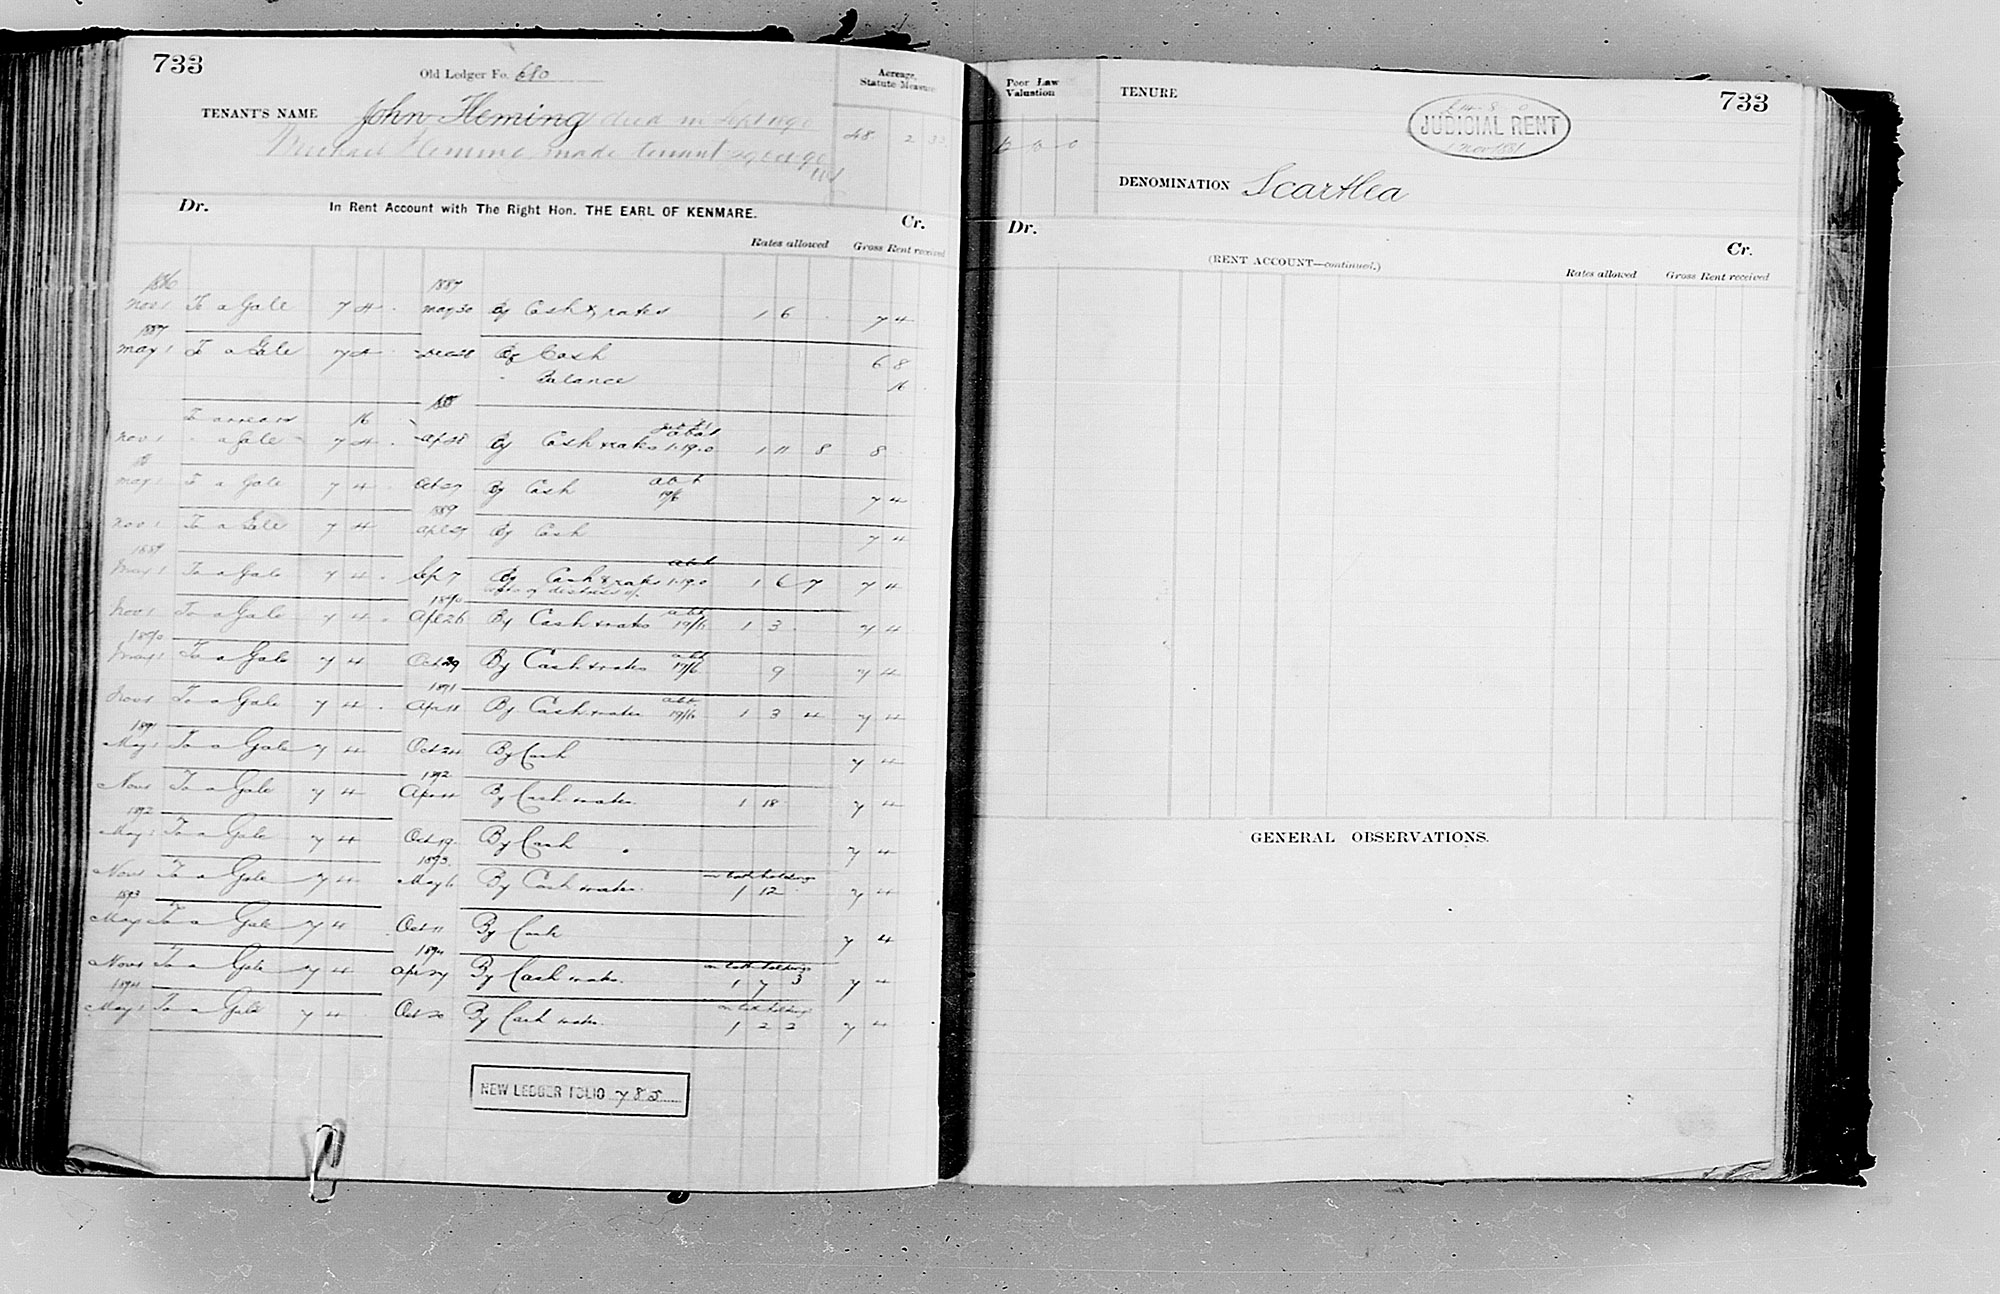 733
Old Ledger Fo. 680
Acreage, Statute Measure
TENANT'S NAME John Fleming died in Sept 1890
48 2 33
Michael Fleming made tenant
Dr. In Rent Account with The Right Hon. THE EARL OF KENMARE. Cr.
Rates allowed Gross Rent received
1886 1887
Nov 1 To a Gale 7 4 May 30 By Cash & rates 1 6 7 4
1887
May 1 To a Gale 7 4 Dec 28 By Cash 6 8
" Balance 16
1888
To arrears 16
Nov 1 " a Gale 7 4 Apl 28 By Cash & rates abat 1.19.0 1 11 8 8
88
May 1 To a Gale 7 4 Oct 27 By Cash abt 19/6 7 4
1889
Nov 1 To a Gale 7 4 Apl 27 By Cash 7 4
1889
May 1 To a Gale 7 4 Sep 7 By Cash & rates abt 1.19.0 1 6 7 7 4
costs of distress
1890
Nov 1 To a Gale 7 4 Apl 26 By Cash & rates abt 19/6 1 3 7 4
1890
May 1 To a Gale 7 4 Oct 29 By Cash & rates abt 19/6 9 7 4
1891
Nov 1 To a Gale 7 4 Apr 11 By Cash & rates abt 19/6 1 3 4 7 4
1891
May 1 To a Gale 7 4 Oct 24 By Cash 7 4
1892
Nov 1 To a Gale 7 4 Apr 11 By Cash & rates 1 18 7 4
1892
May 1 To a Gale 7 4 Oct 19 By Cash 7 4
1893
Nov 1 To a Gale 7 4 May 6 By Cash & rates on both holdings 1 12 7 4
1893
May 1 To a Gale 7 4 Oct 11 By Cash 7 4
1894
Nov 1 To a Gale 7 4 Apl 27 By Cash & rates on both holdings 1 7 3 7 4
1894
May 1 To a Gale 7 4 Oct 20 By Cash & rates on both holdings 1 2 2 7 4
NEW LEDGER FOLIO 785
Poor Law Valuation
TENURE
733
£14.8.0
JUDICIAL RENT
1 Nov 1881
DENOMINATION Scartlea
Dr. Cr.
(RENT ACCOUNT—continued.)
Rates allowed Gross Rent received
GENERAL OBSERVATIONS.